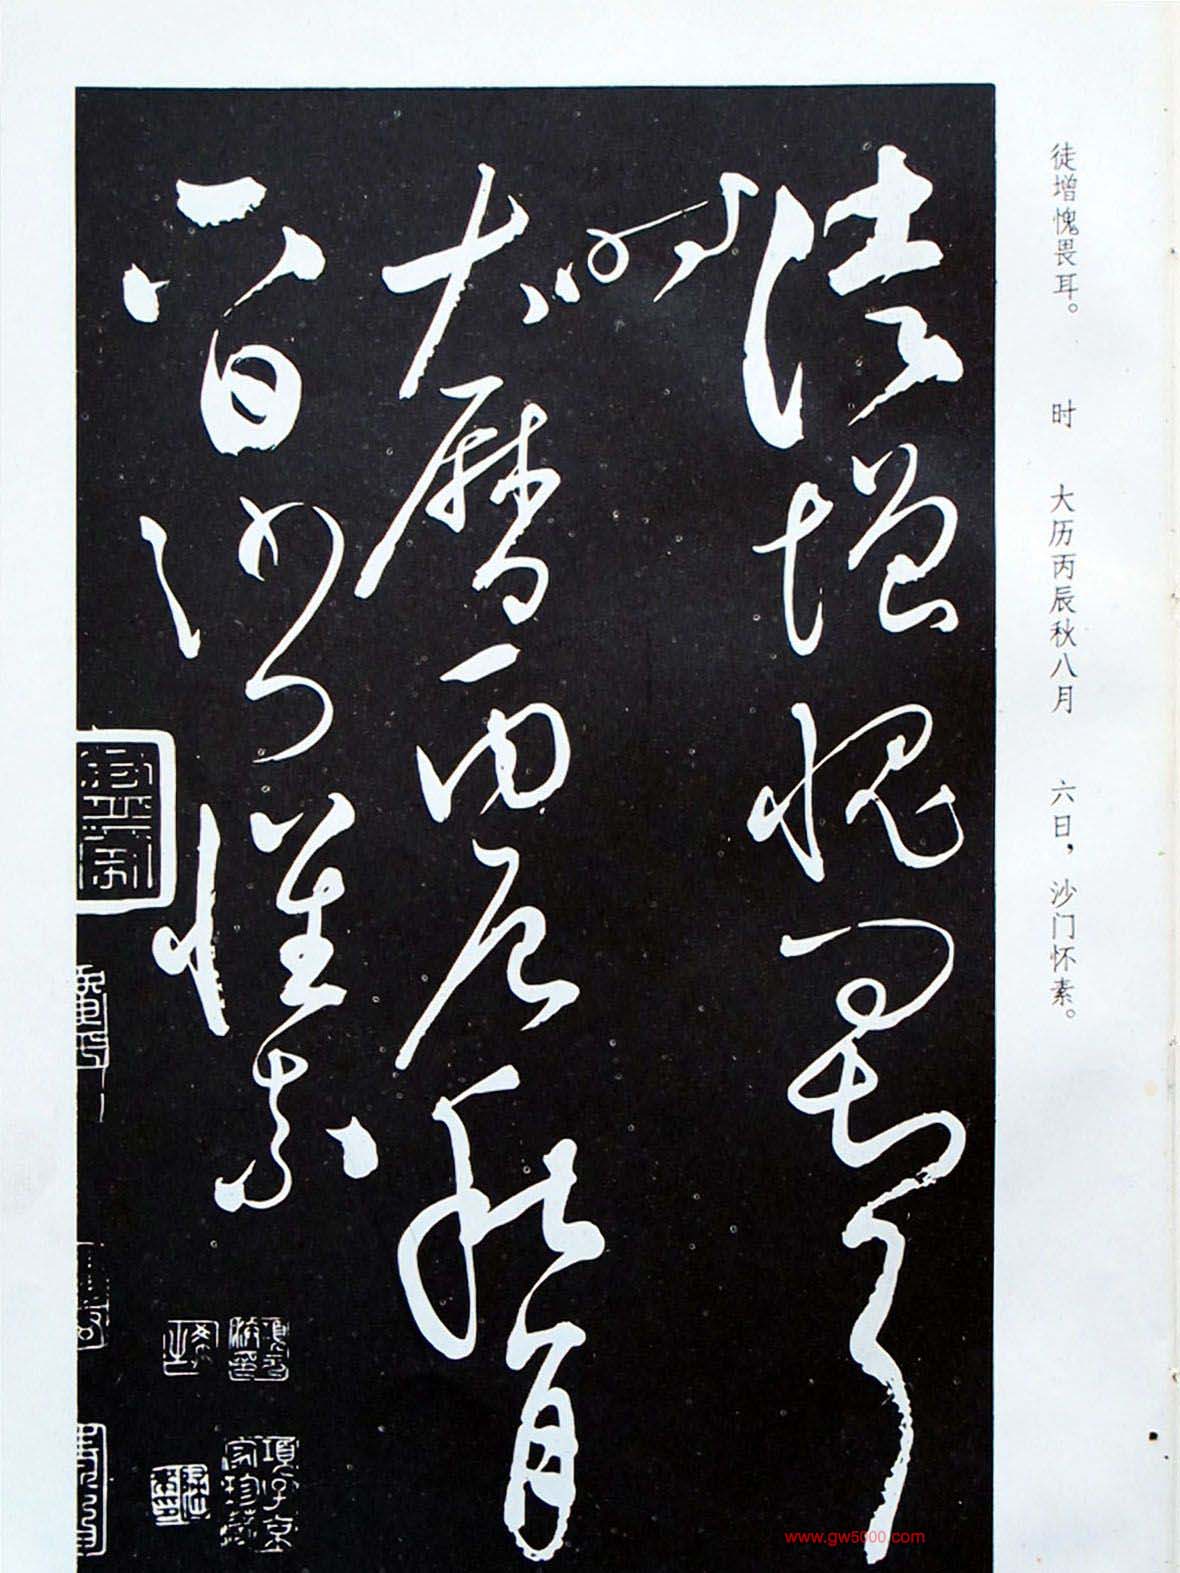 徒增愧畏耳。　时　大历丙辰秋八月　六日，沙门怀素。
徒增愧畏耳
时大曆丙辰秋八月
六日沙门懷素
項元汴印
項子京家珍藏
www.gw5000.com